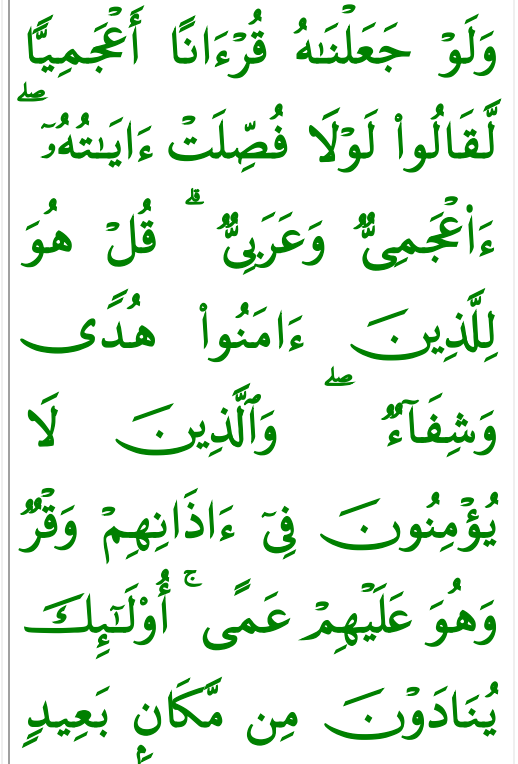 وَلَوْ جَعَلْنَٰهُ قُرْءَانًا أَعْجَمِيًّا
لَّقَالُوا۟ لَوْلَا فُصِّلَتْ ءَايَٰتُهُۥٓ ۖ
ءَا۬عْجَمِىٌّ وَعَرَبِىٌّ ۗ قُلْ هُوَ
لِلَّذِينَ ءَامَنُوا۟ هُدًى
وَشِفَآءٌ ۖ وَٱلَّذِينَ لَا
يُؤْمِنُونَ فِىٓ ءَاذَانِهِمْ وَقْرٌ
وَهُوَ عَلَيْهِمْ عَمًى ۚ أُو۟لَٰٓئِكَ
يُنَادَوْنَ مِن مَّكَانٍۭ بَعِيدٍ